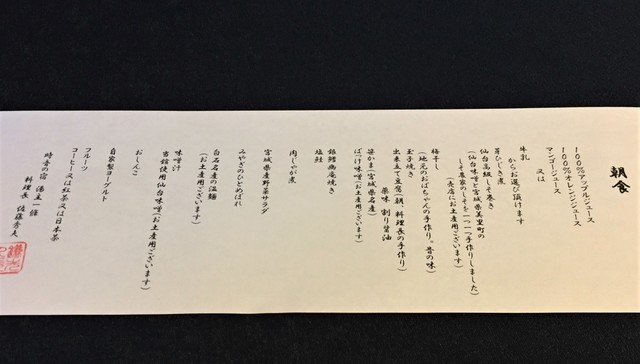 朝食
100%アップルジュース
100%オレンジジュース
マンゴージュース
又は
牛乳
からお選び頂けます
芽ひじき煮
仙台高級しそ巻き
(仙台味噌と宮城県美里町の
しそ農家のしそを一つ一つ手作りしました)
(売店にお土産用ございます)
梅干し
(地元のおばちゃんの手作り。昔の味)
玉子焼き
出来立て豆腐(朝、料理長の手作り)
薬味 割り醤油
笹かま(宮城県名産)
ばっけ味噌(お土産用ございます)
銀鱈幽庵焼き
塩鮭
肉じゃが煮
宮城県産野菜サラダ
みやぎのひとめぼれ
白石名産の温麺
(お土産用ございます)
味噌汁
当館使用仙台味噌(お土産用ございます)
おしんこ
自家製ヨーグルト
フルーツ
コーヒー又は紅茶又は日本茶
時音の宿 湯主一條
料理長 佐藤秀夫